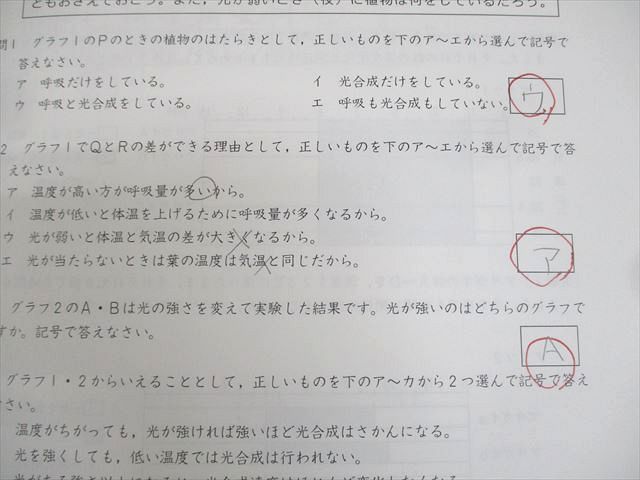 ともおさえておこう。また，光が弱いとき（夜）に植物は何をしているだろう。
問1 グラフ1のPのときの植物のはたらきとして，正しいものを下のア〜エから選んで記号で
答えなさい。
ア 呼吸だけをしている。 イ 光合成だけをしている。
ウ 呼吸と光合成をしている。 エ 呼吸も光合成もしていない。 ウ
2 グラフ1でQとRの差ができる理由として，正しいものを下のア〜エから選んで記号で答
えなさい。
ア 温度が高い方が呼吸量が多いから。
イ 温度が低いと体温を上げるために呼吸量が多くなるから。
ウ 光が弱いと体温と気温の差が大きくなるから。
エ 光が当たらないときは葉の温度は気温と同じだから。 ア
グラフ2のA・Bは光の強さを変えて実験した結果です。光が強いのはどちらのグラフで
すか。記号で答えなさい。 A
グラフ1・2からいえることとして，正しいものを下のア〜カから2つ選んで記号で答え
なさい。
温度がちがっても，光が強ければ強いほど光合成はさかんになる。
光を強くしても，低い温度では光合成は行われない。